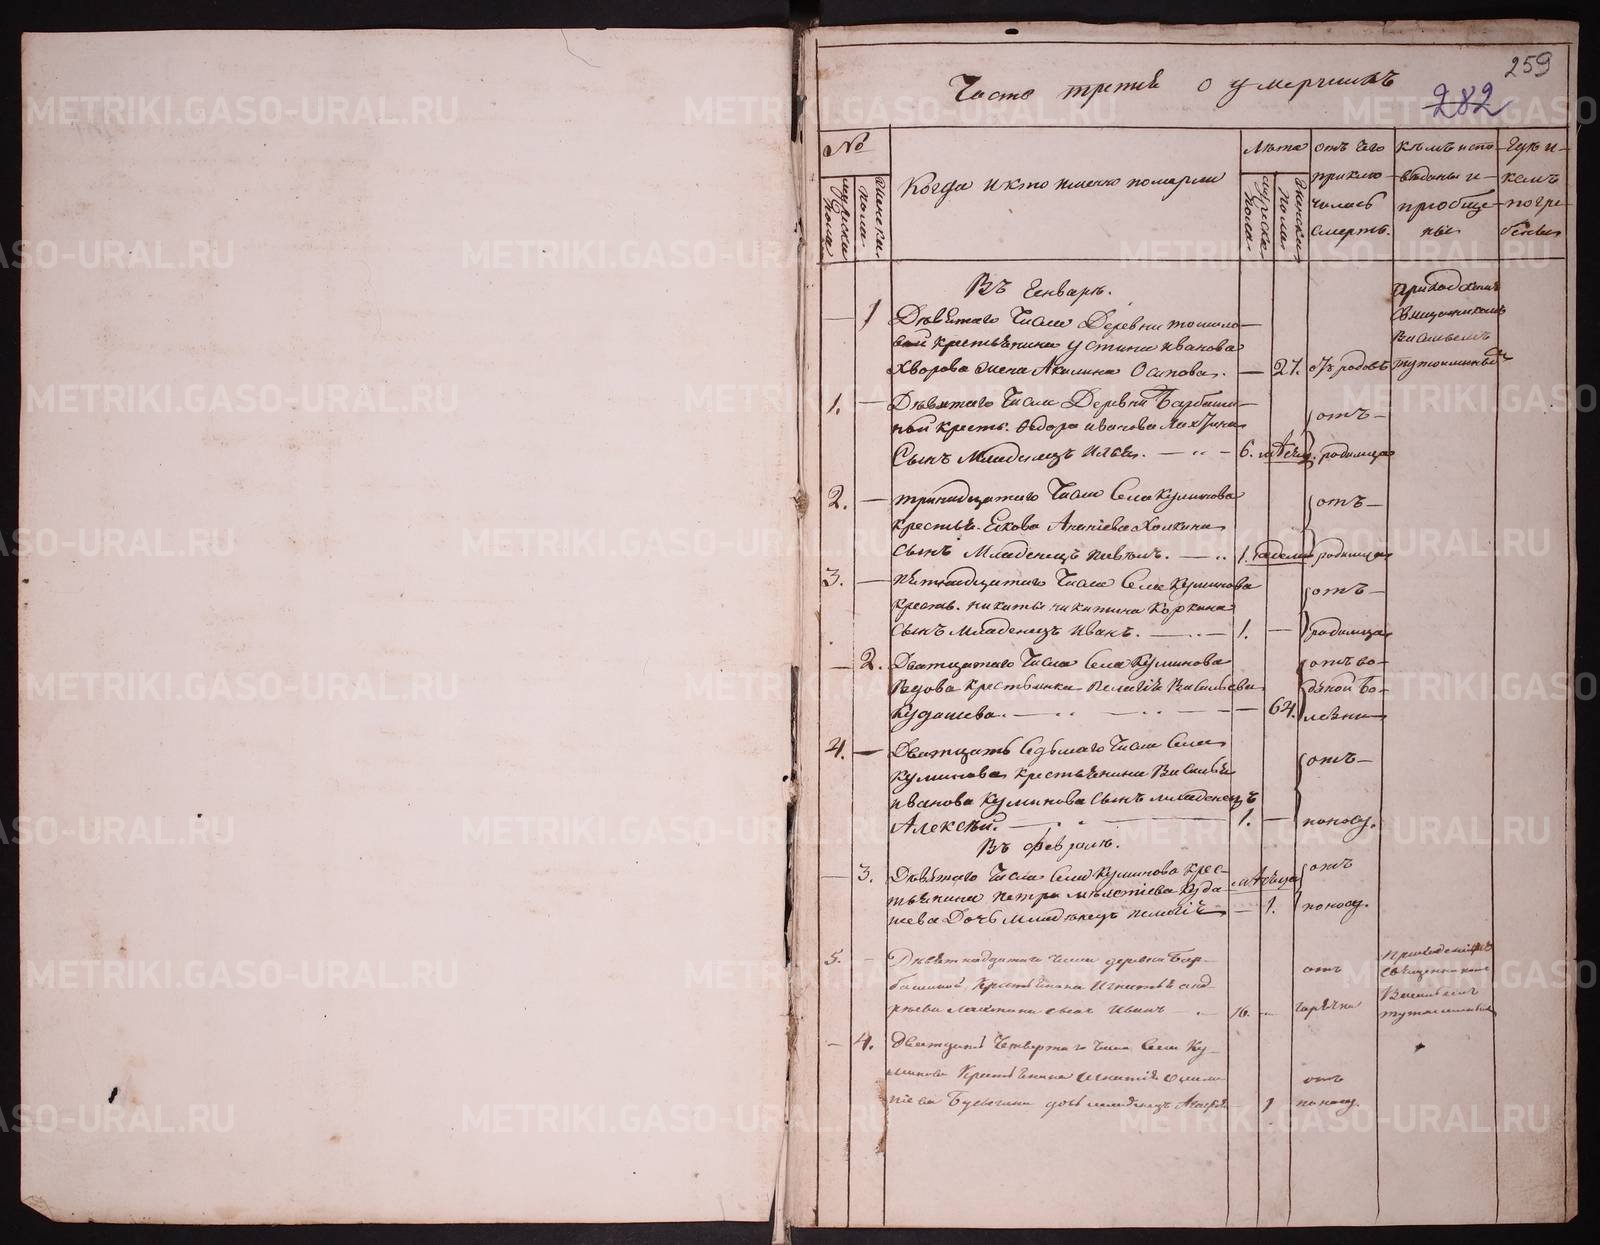 259
Часть третия о умерших
282
№
мужска пола
женска пола
Когда и кто именно померли
Лѣта
мужска пола
женска пола
отъ чего приключилась смерть.
кѣмъ исповѣданы и приобщены
Гдѣ и кемъ погребены
Въ Генварѣ.
1
Девятаго Числа Деревни
крестьянина Устина иванова
Хворова жена Акилина Осипова.
27.
отъ родовъ
Приходскимъ
Священникомъ
Васильемъ
Тутолминымъ
1.
Девятаго Числа Деревни Барбаши-
ной кресть. Ѳедора иванова Лахтина
Сынъ Младенецъ Илья.
6. мѣсяц.
отъ
родимца
2.
тринадцатаго Числа Села Куминова
крестья. Якова Ананіева Холкина
сынъ Младенецъ Павелъ.
1. недели
отъ
родимца
3.
пятнадцатаго Числа Села Куминова
кресть. никиты никитина Коркина
сынъ Младенецъ Иванъ.
1.
отъ
родимца
2.
Дватцатаго Числа Села Куминова
Вдова крестьянка Пелагія Васильева
Кудашева.
64.
отъ во-
дяной бо-
лезни
4.
Дватцать Седьмаго Числа Села
Куминова крестьянина Василья
иванова Куминова сынъ младенецъ
Алексѣй.
1.
отъ
поносу.
Въ Феврале.
3.
Девятаго Числа Села Куминова крес-
тьянина Петра Куда-
шева Дочь младенецъ Пелагія
мѣсяца
1.
отъ
поносу.
5.
Девятнадцатаго числа деревни Бар-
башиной Крестьянина Игнатья Анд-
реева Лахтина сынъ Иванъ
16.
отъ
горячки
Приходскимъ
священникомъ
Васильемъ
тутолминымъ
4.
Дватцать Четвертаго числа Села Ку-
минова Крестьянина Игнатія
дочь младенецъ
1
отъ
поносу.
METRIKI.GASO-URAL.RU